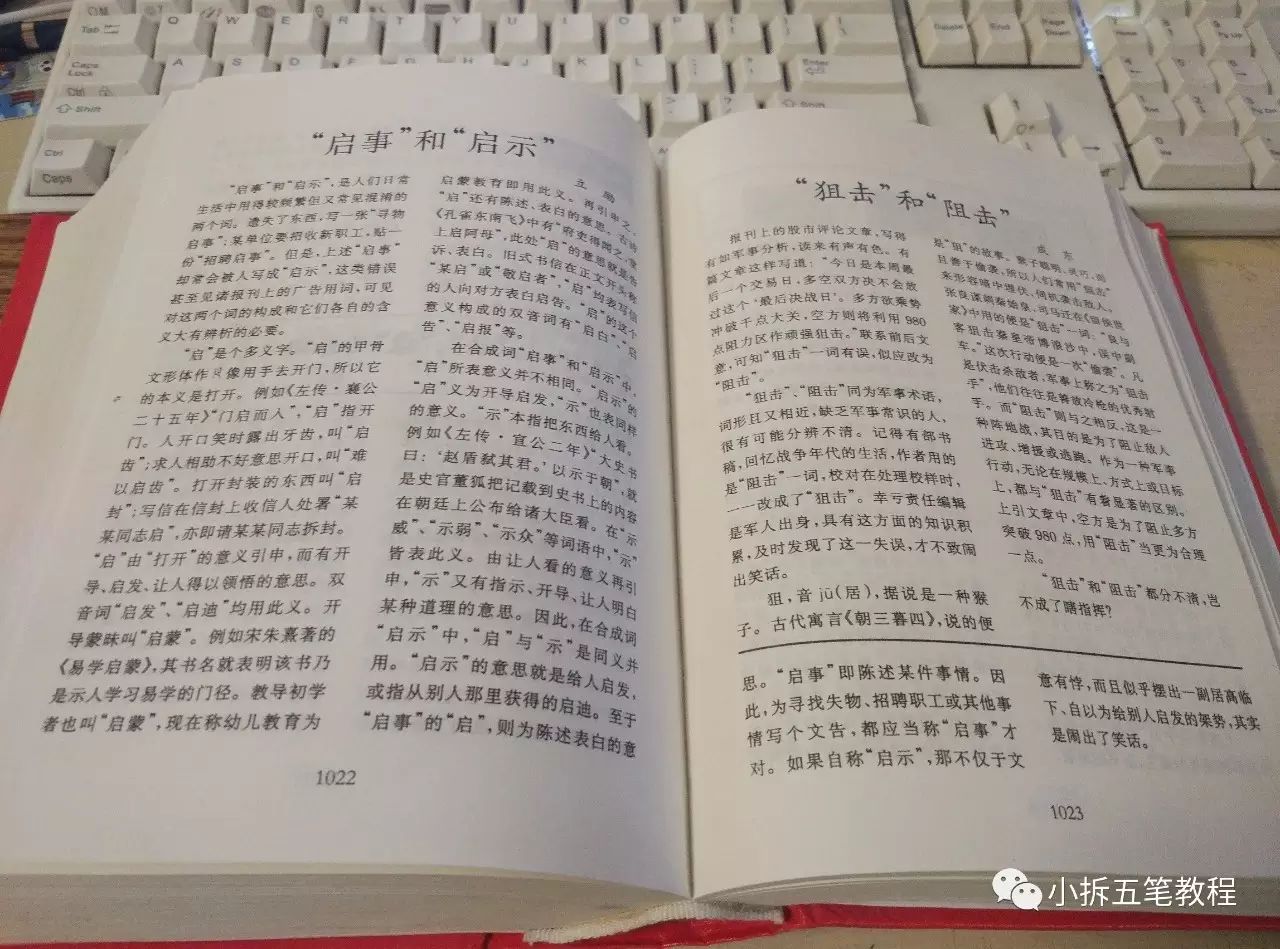 “启事”和“启示”
“启事”和“启示”,是人们日常
生活中用得较频繁但又常见混淆的
两个词。遗失了东西,写一张“寻物
启事”;某单位要招收新职工,贴一
份“招聘启事”。但是,上述“启事”
却常会被人写成“启示”,这类错误
甚至见诸报刊上的广告用词,可见
对这两个词的构成和它们各自的含
义大有辨析的必要。
“启”是个多义字。“启”的甲骨
文形体作 像用手去开门,所以它
的本义是打开。例如《左传·襄公
二十五年》“门启而入”,“启”指开
门。人开口笑时露出牙齿,叫“启
齿”;求人相助不好意思开口,叫“难
以启齿”。打开封装的东西叫“启
封”;写信在信封上收信人处署“某
某同志启”,亦即请某某同志拆封。
“启”由“打开”的意义引申,而有开
导、启发、让人得以领悟的意思。双
音词“启发”、“启迪”均用此义。开
导蒙昧叫“启蒙”。例如宋朱熹著的
《易学启蒙》,其书名就表明该书乃
是示人学习易学的门径。教导初学
者也叫“启蒙”,现在称幼儿教育为
启蒙教育即用此义。再引申之,
“启”还有陈述、表白的意思。古诗
《孔雀东南飞》中有“府吏得闻之,堂
上启阿母”,此处“启”的意思就是告
诉、表白。旧式书信在正文开头称
“某启”或“敬启者”,“启”均表写信
的人向对方表白启告。“启”的这个
意义构成的双音词有“启白”、“启
告”、“启报”等。
在合成词“启事”和“启示”中,
“启”所表意义并不相同。“启示”的
“启”义为开导启发,“示”也表同样
的意义。“示”本指把东西给人看。
例如《左传·宣公二年》“大史书
曰:‘赵盾弑其君。’以示于朝”,就
是史官董狐把记载到史书上的内容
在朝廷上公布给诸大臣看。在“示
威”、“示弱”、“示众”等词语中,“示”
皆表此义。由让人看的意义再引
申,“示”又有指示、开导、让人明白
某种道理的意思。因此,在合成词
“启示”中,“启”与“示”是同义并
用。“启示”的意思就是给人启发,
或指从别人那里获得的启迪。至于
“启事”的“启”,则为陈述表白的意
1022
“狙击”和“阻击”
报刊上的股市评论文章,写得
有如军事分析,读来有声有色。有
篇文章这样写道:“今日是本周最
后一个交易日,多空双方决不会放
过这个‘最后决战日’。多方欲乘势
冲破千点大关,空方则将利用980
点阻力区作顽强狙击。”联系前后文
意,可知“狙击”一词有误,似应改为
“阻击”。
“狙击”、“阻击”同为军事术语,
词形且又相近,缺乏军事常识的人,
很有可能分辨不清。记得有部书
稿,回忆战争年代的生活,作者用的
是“阻击”一词,校对在处理校样时,
一一改成了“狙击”。幸亏责任编辑
是军人出身,具有这方面的知识积
累,及时发现了这一失误,才不致闹
出笑话。
狙,音jū(居),据说是一种猴
子。古代寓言《朝三暮四》,说的便
是“狙”的故事。猴子聪明、灵巧,而
且善于偷袭,所以人们常用“狙击”
来形容暗中埋伏、伺机袭击敌人。
张良谋刺秦始皇,司马迁在《留侯世
家》中用的便是“狙击”一词:“良与
客狙击秦皇帝博浪沙中,误中副
车。”这次行动便是一次“偷袭”。凡
是伏击杀敌者,军事上称之为“狙击
手”,他们往往是将放冷枪的优秀射
手。而“阻击”则与之相反,这是一
种阵地战,其目的是为了阻止敌人
进攻、增援或逃跑。作为一种军事
行动,无论在规模上、方式上或目标
上,都与“狙击”有着显著的区别。
上引文章中,空方是为了阻止多方
突破980点,用“阻击”当更为合理
一点。
“狙击”和“阻击”都分不清,岂
不成了瞎指挥?
思。“启事”即陈述某件事情。因
此,为寻找失物、招聘职工或其他事
情写个文告,都应当称“启事”才
对。如果自称“启示”,那不仅于文
意有悖,而且似乎摆出一副居高临
下、自以为给别人启发的架势,其实
是闹出了笑话。
1023
小拆五笔教程